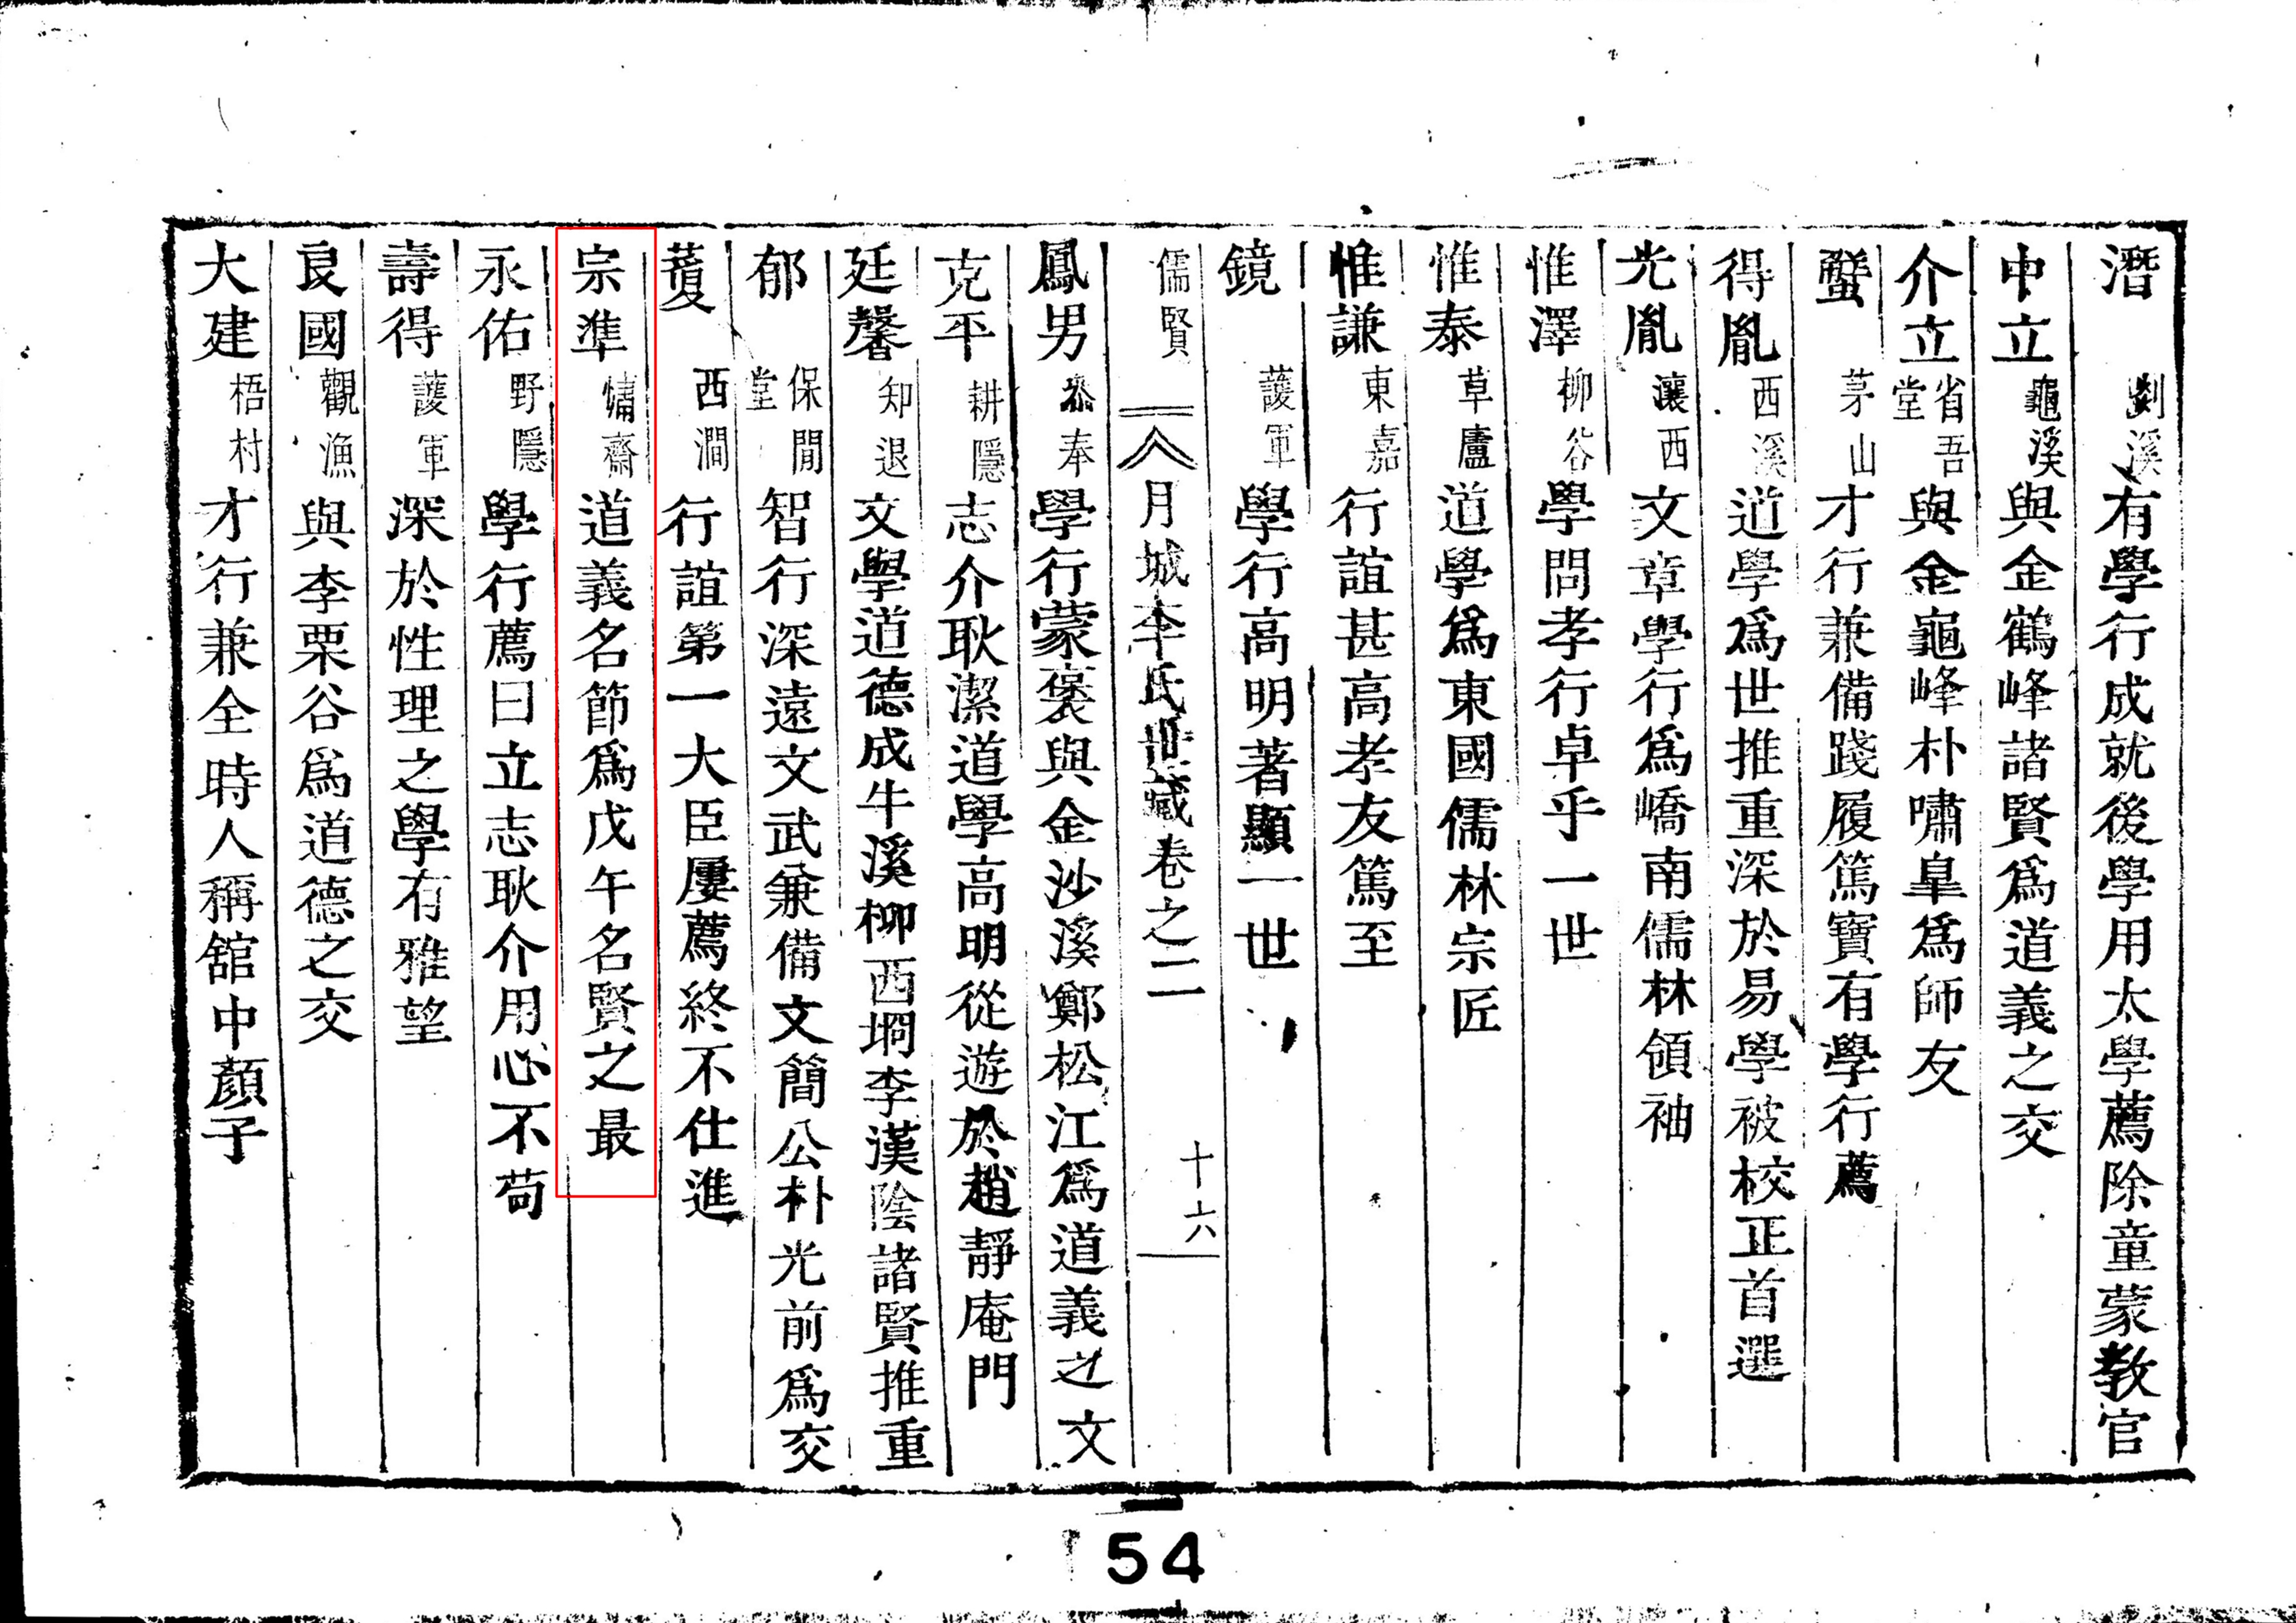 潛 剡溪 有學行成就後學用太學薦除童蒙敎官
中立 龜溪 與金鶴峰諸賢爲道義之交
介立 省吾堂 與金龜峰朴嘯皐爲師友
蟹 茅山 才行兼備踐履篤實有學行薦
得胤 西溪 道學爲世推重深於易學被校正首選
光胤 瀼西 文章學行爲嶠南儒林領袖
惟澤 柳谷 學問孝行卓乎一世
惟泰 草廬 道學爲東國儒林宗匠
惟謙 東嘉 行誼甚高孝友篤至
鏡 護軍 學行高明著顯一世
儒賢 月城李氏世藏卷之二 十六
鳳男 叅奉 學行蒙褒與金沙溪鄭松江爲道義之文
克平 耕隱 志介耿潔道學高明從遊於趙靜庵門
廷馨 知退 文學道德成牛溪柳西坰李漢陰諸賢推重
郁 保閒堂 智行深遠文武兼備文簡公朴光前爲交
蕧 西澗 行誼第一大臣屢薦終不仕進
宗準 慵齋 道義名節爲戊午名賢之最
永佑 野隱 學行薦曰立志耿介用心不苟
壽得 護軍 深於性理之學有雅望
良國 觀漁 與李栗谷爲道德之交
大建 梧村 才行兼全時人稱舘中顏子
54